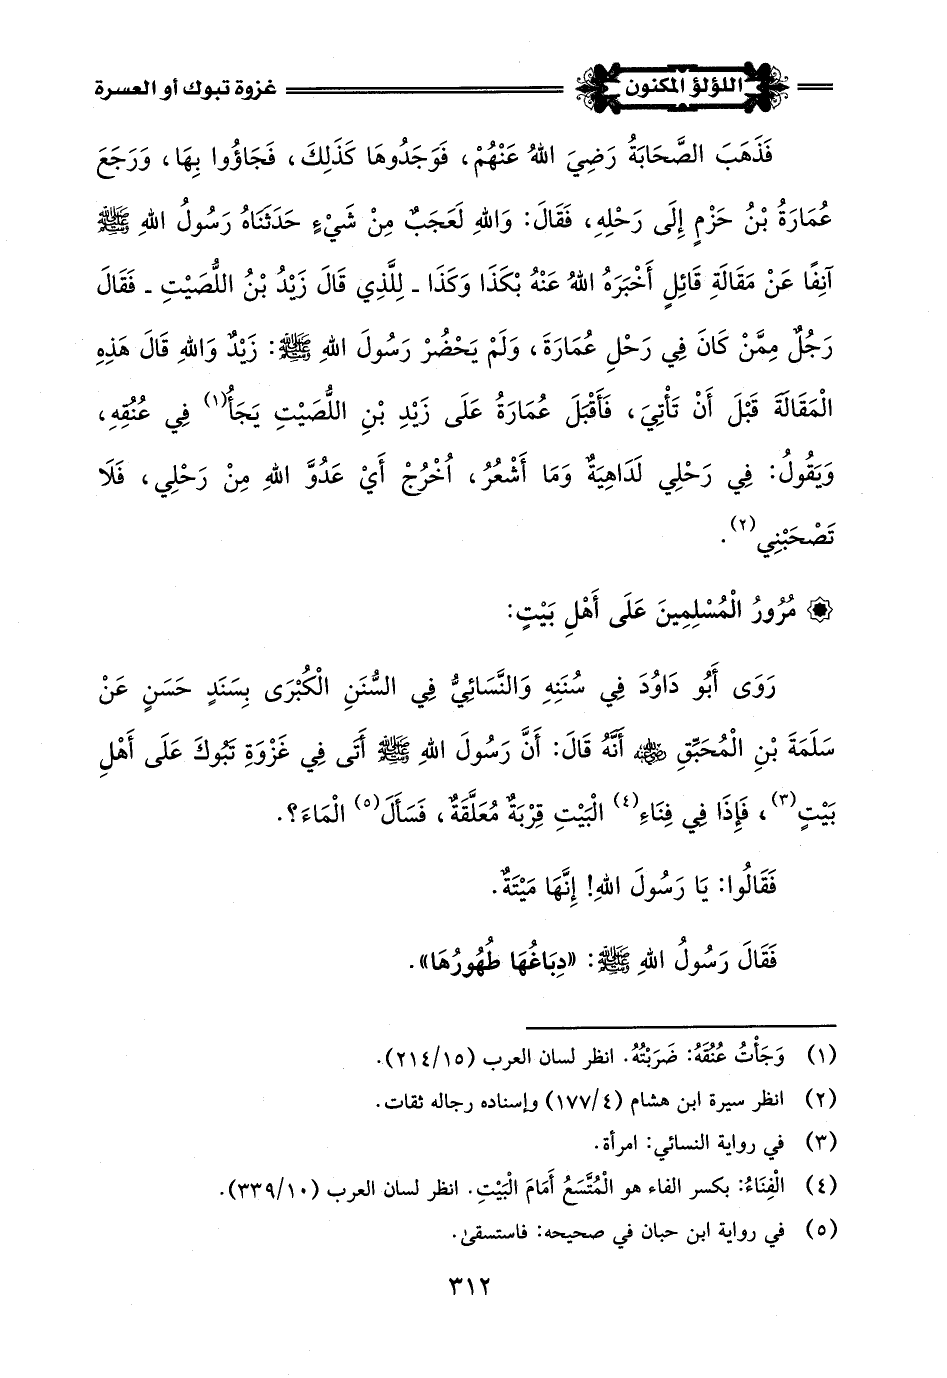 اللؤلؤ المكنون
غزوة تبوك أو العسرة
فَذَهَبَ الصَّحَابَةُ رَضِيَ اللهُ عَنْهُمْ، فَوَجَدُوهَا كَذَلِكَ، فَجَاؤُوا بِهَا، وَرَجَعَ
عُمَارَةُ بْنُ حَزْمٍ إِلَى رَحْلِهِ، فَقَالَ: وَاللهِ لَعَجَبٌ مِنْ شَيْءٍ حَدَثَنَاهُ رَسُولُ اللهِ ﷺ
آنِفًا عَنْ مَقَالَةِ قَائِلٍ أَخْبَرَهُ اللهُ عَنْهُ بِكَذَا وَكَذَا ـ لِلَّذِي قَالَ زَيْدُ بْنُ اللُّصَيْتِ ـ فَقَالَ
رَجُلٌ مِمَّنْ كَانَ فِي رَحْلِ عُمَارَةَ، وَلَمْ يَحْضُرْ رَسُولَ اللهِ ﷺ: زَيْدٌ وَاللهِ قَالَ هَذِهِ
الْمَقَالَةَ قَبْلَ أَنْ تَأْتِيَ، فَأَقْبَلَ عُمَارَةُ عَلَى زَيْدِ بْنِ اللُّصَيْتِ يَجَأُ(١) فِي عُنُقِهِ،
وَيَقُولُ: فِي رَحْلِي لَدَاهِيَةٌ وَمَا أَشْعُرُ، اُخْرُجْ أَيْ عَدُوَّ اللهِ مِنْ رَحْلِي، فَلَا
تَصْحَبْنِي(٢).
مُرُورُ الْمُسْلِمِينَ عَلَى أَهْلِ بَيْتٍ:
رَوَى أَبُو دَاوُدَ فِي سُنَنِهِ وَالنَّسَائِيُّ فِي السُّنَنِ الْكُبْرَى بِسَنَدٍ حَسَنٍ عَنْ
سَلَمَةَ بْنِ الْمُحَبِّقِ رضي الله عنه أَنَّهُ قَالَ: أَنَّ رَسُولَ اللهِ ﷺ أَتَى فِي غَزْوَةِ تَبُوكَ عَلَى أَهْلِ
بَيْتٍ(٣)، فَإِذَا فِي فِنَاءِ(٤) الْبَيْتِ قِرْبَةٌ مُعَلَّقَةٌ، فَسَأَلَ(٥) الْمَاءَ؟.
فَقَالُوا: يَا رَسُولَ اللهِ! إِنَّهَا مَيْتَةٌ.
فَقَالَ رَسُولُ اللهِ ﷺ: «دِبَاغُهَا طُهُورُهَا».
(١) وَجَأْتُ عُنُقَهُ: ضَرَبْتُهُ. انظر لسان العرب (٢١٤/١٥).
(٢) انظر سيرة ابن هشام (١٧٧/٤) وإسناده رجاله ثقات.
(٣) في رواية النسائي: امرأة.
(٤) الْفِنَاءُ: بكسر الفاء هو الْمُتَّسَعُ أَمَامَ الْبَيْتِ. انظر لسان العرب (٣٣٩/١٠).
(٥) في رواية ابن حبان في صحيحه: فاستسقىٰ.
٣١٢